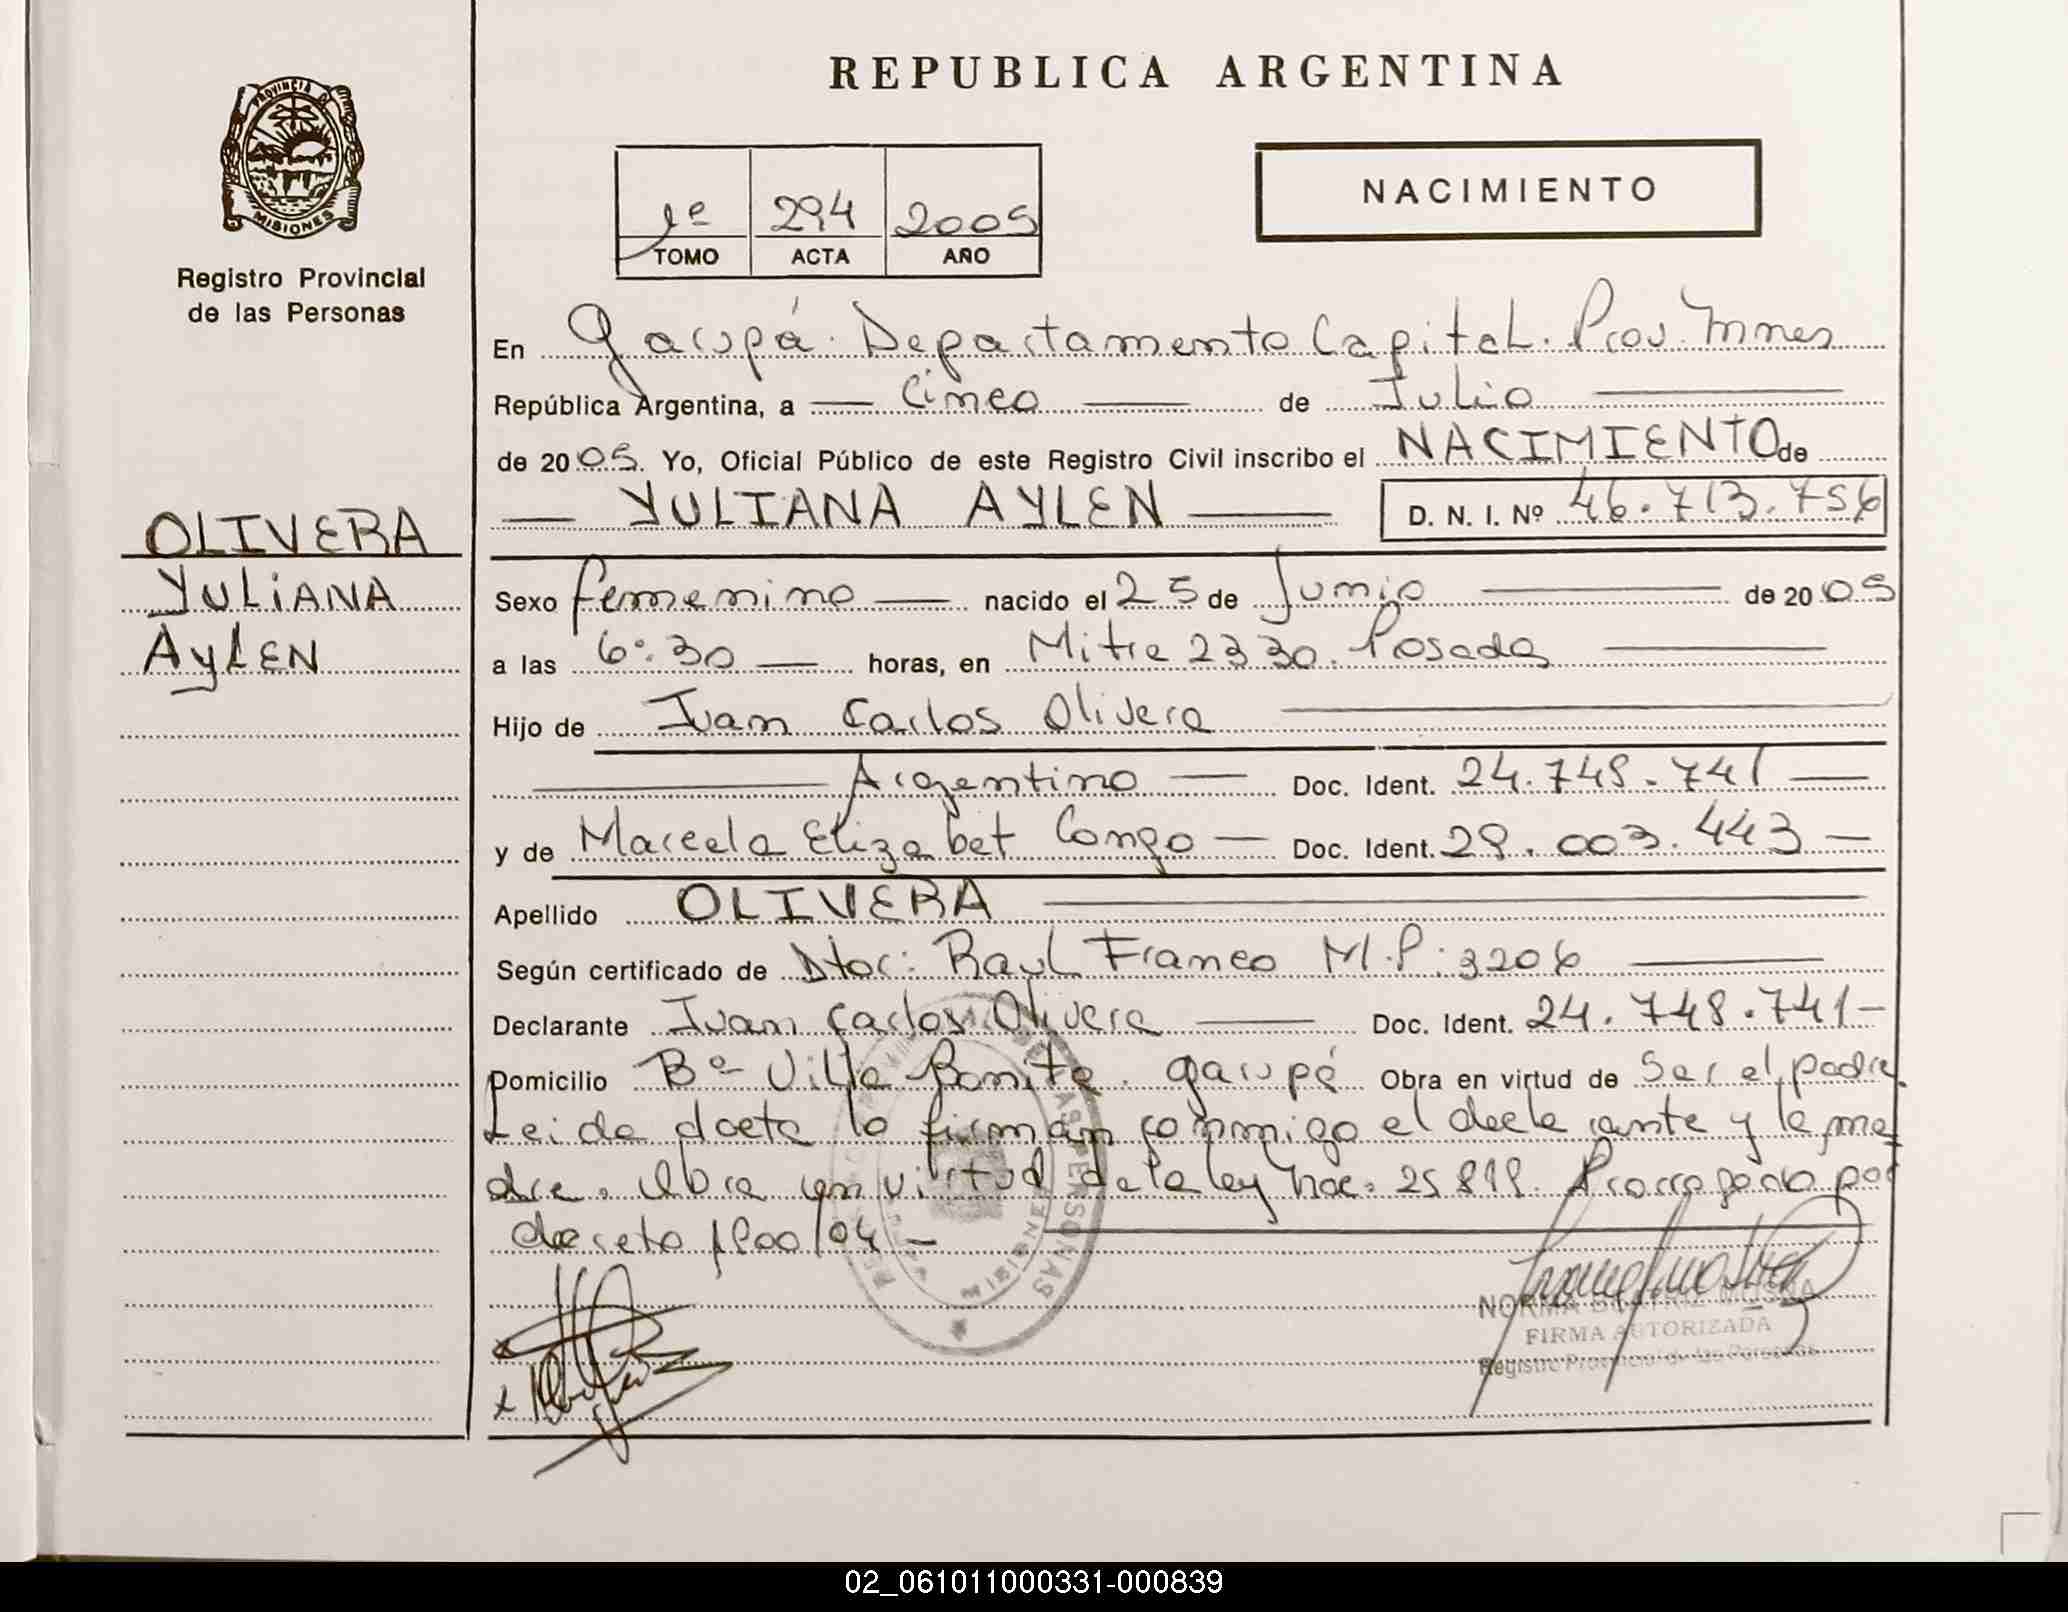 REPUBLICA ARGENTINA
PROVINCIA D MISIONES
Registro Provincial
de las Personas
1º 294 2005
TOMO ACTA AÑO
NACIMIENTO
En Garupá. Departamento Capital. Prov. Mnes
República Argentina, a — Cinco — de Julio —
de 2005. Yo, Oficial Público de este Registro Civil inscribo el NACIMIENTO de
— YULIANA AYLEN — D. N. I. Nº 46.713.756
OLIVERA
YULiANA
AyLEN
Sexo femenino — nacido el 25 de Junio — de 2005
a las 6:30 — horas, en Mitre 2330. Posadas —
Hijo de Juan Carlos Olivera —
— Argentino — Doc. Ident. 24.748.741 —
y de Marcela Elizabet Congo — Doc. Ident. 29.003.443 —
Apellido OLIVERA —
Según certificado de Dtor: Raul Franco M.P: 3206 —
Declarante Juan Carlos Olivera — Doc. Ident. 24.748.741 -
Domicilio Bº Villa Bonita. Garupá Obra en virtud de Ser el padre.
Leida acta lo firman conmigo el declarante y la ma
dre. Obra en virtud de la ley nac. 25.819. Prorrogado por
decreto 1900/04 -
DE LAS PERSONAS
MISIONES
NORMA
FIRMA AUTORIZADA
Registro Provincial de las Personas
02_061011000331-000839